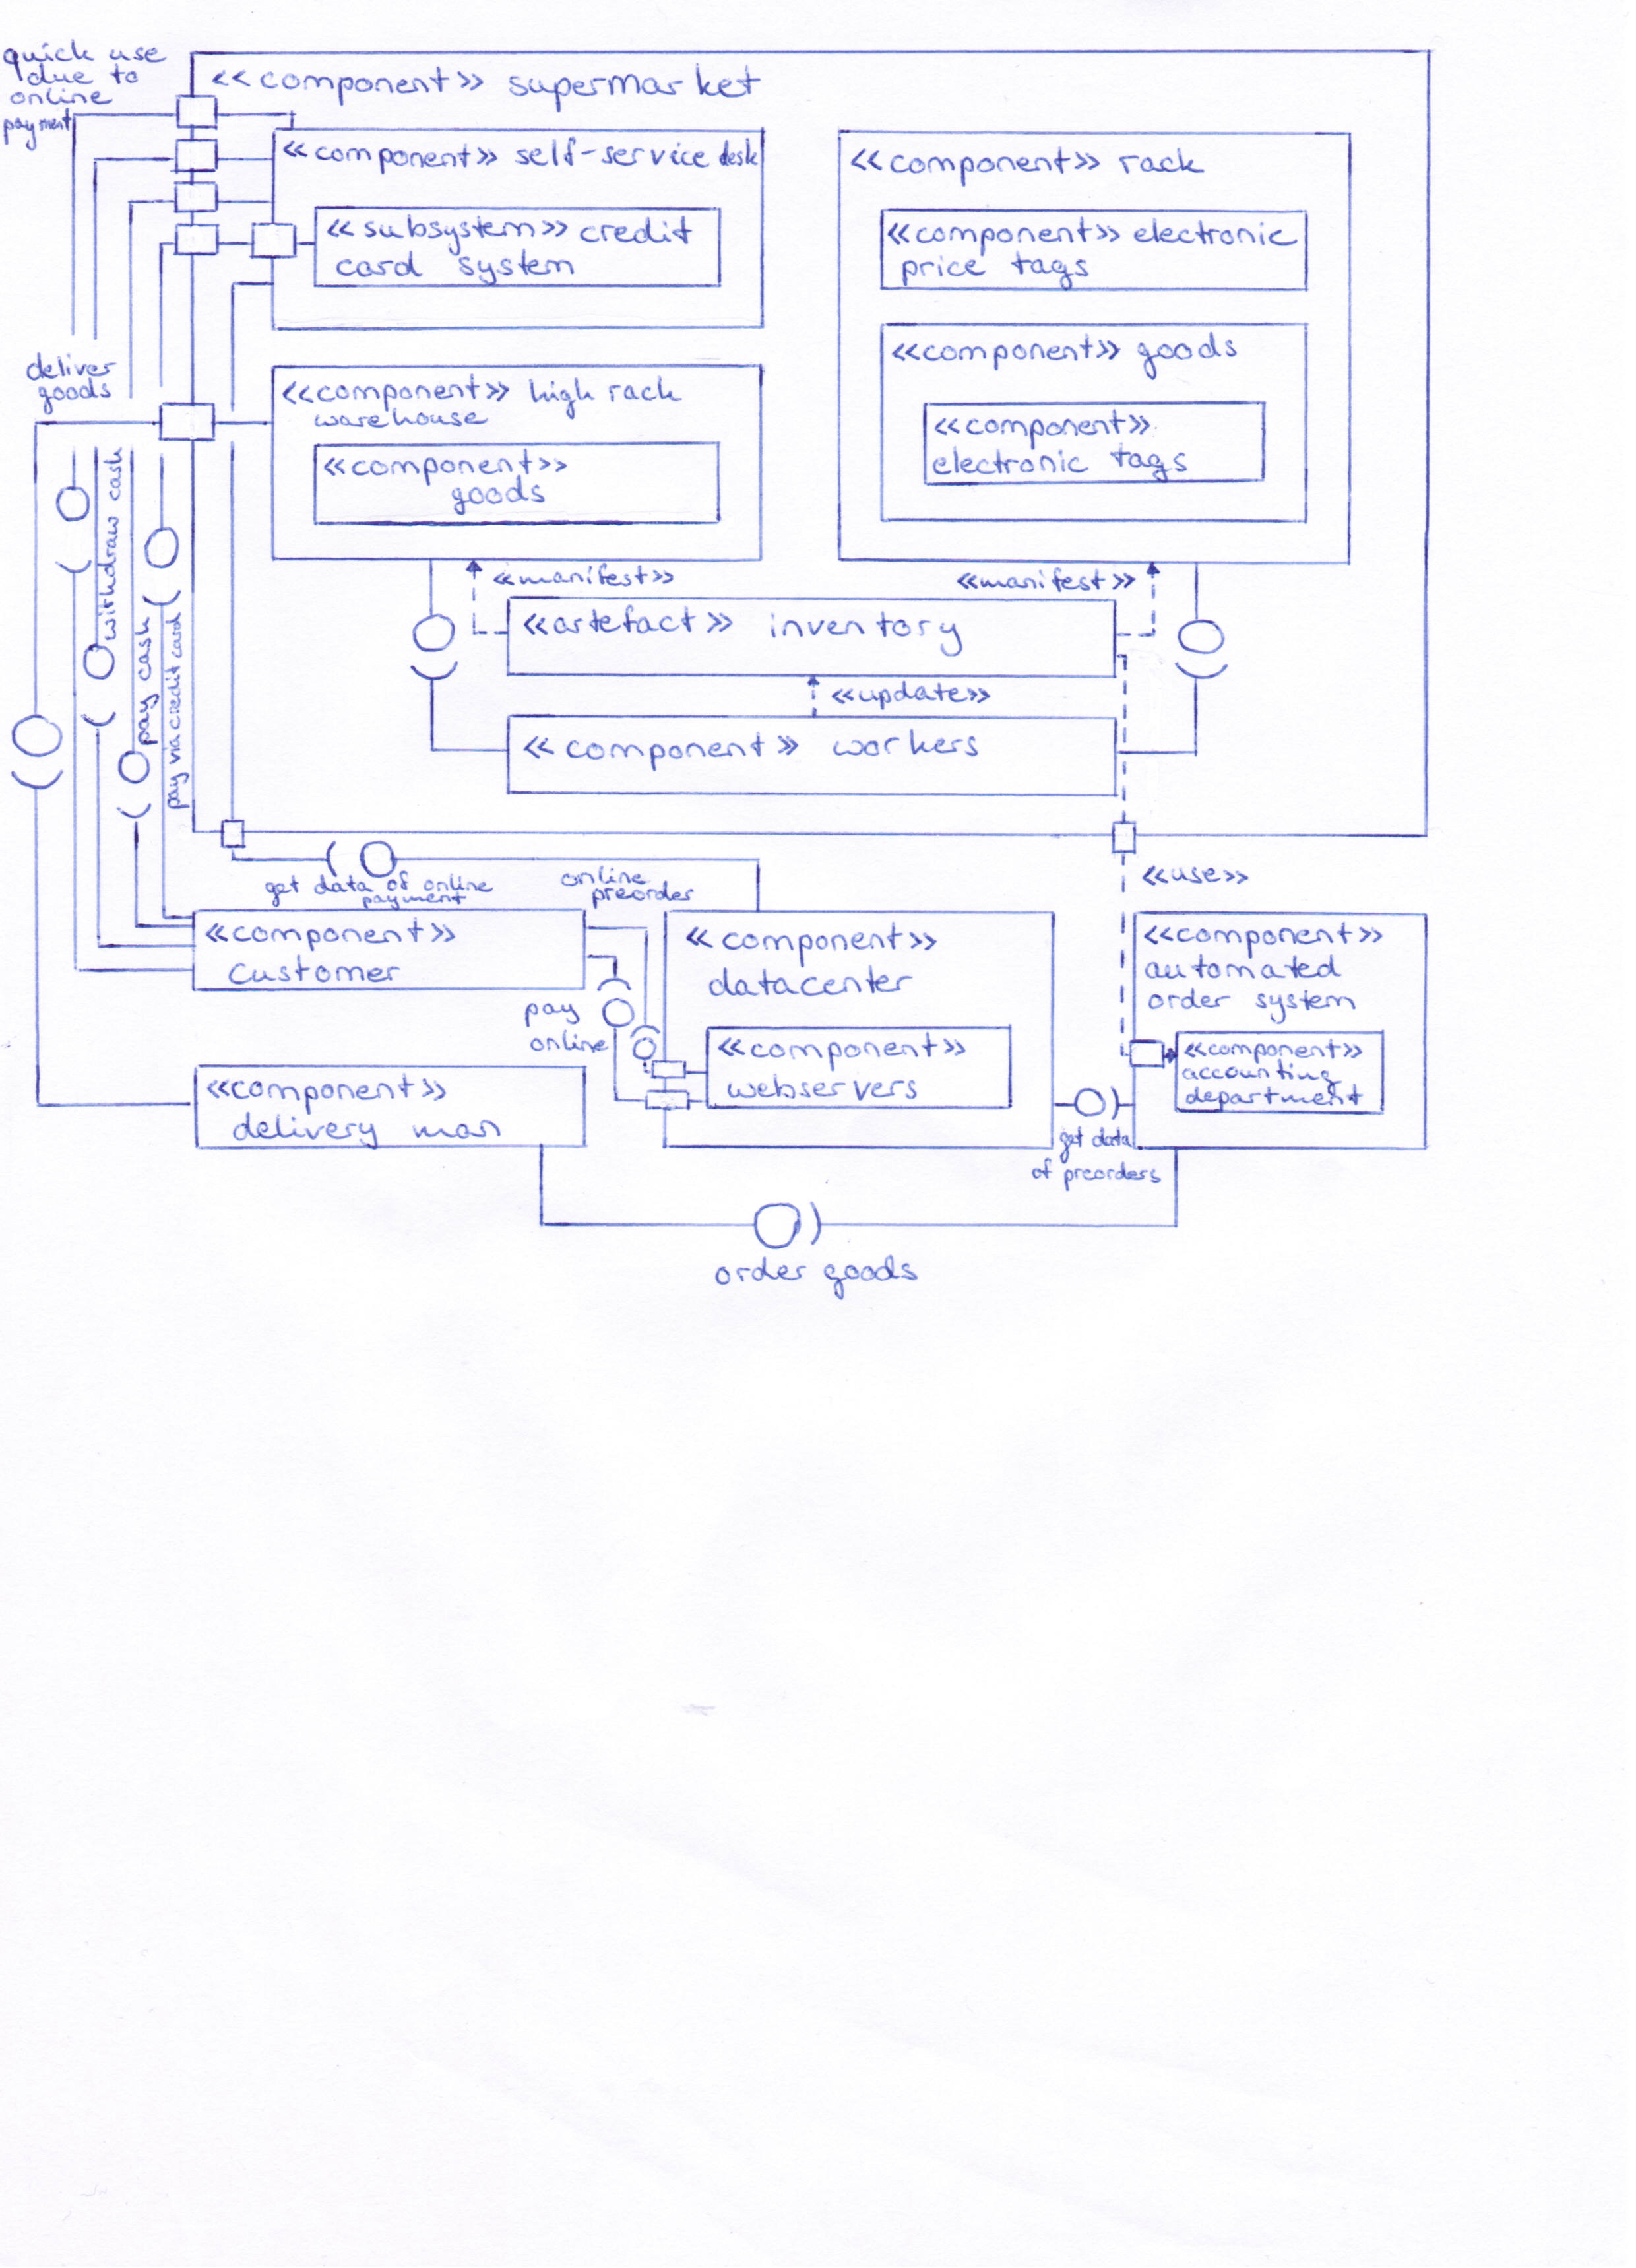 quick use
due to
online
payment
<<component>> supermarket
<<component>> self-service desk
<<subsystem>> credit
card system
<<component>> rack
<<component>> electronic
price tags
<<component>> goods
<<component>>
electronic tags
deliver
goods
<<component>> high rack
warehouse
<<component>>
goods
withdraw cash
pay cash
pay via credit card
<<manifest>>
<<manifest>>
<<artefact>> inventory
<<update>>
<<component>> workers
<<use>>
get data of online
payment
online
preorder
<<component>>
customer
pay
online
<<component>>
datacenter
<<component>>
webservers
<<component>>
automated
order system
<<component>>
accounting
department
<<component>>
delivery man
get data
of preorders
order goods